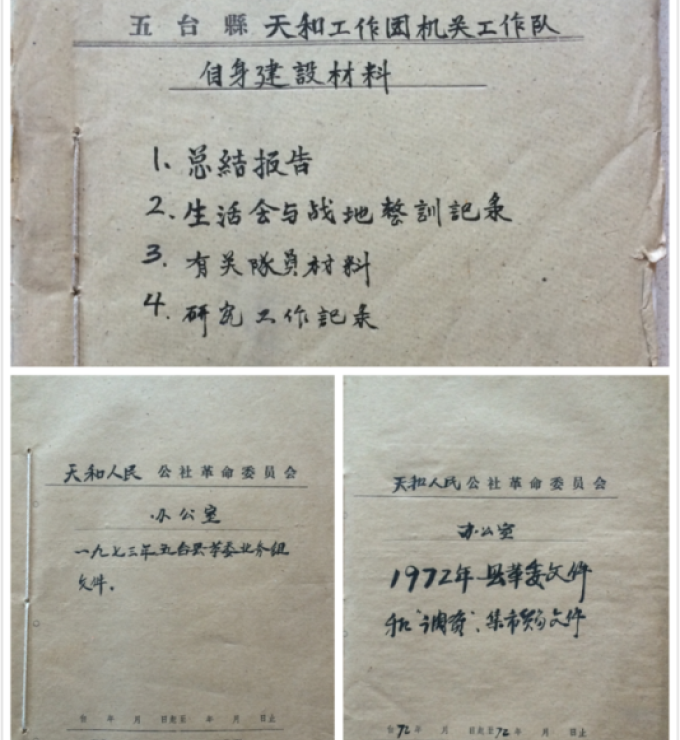 五台縣 天和工作团机关工作队
自身建設材料
1、总結报告
2、生活会与战地整訓記录
3、有关隊員材料
4、研究工作記录
天和人民 公社革命委員会
办公室
一九七三年五台县革委业务組
文件。
自 年 月 日起至 年 月 日止
天和人民公社革命委員会
办公室
1972年县革委文件
和"调资"、集市贸易文件
自72年 月 日起至72年 月 日止